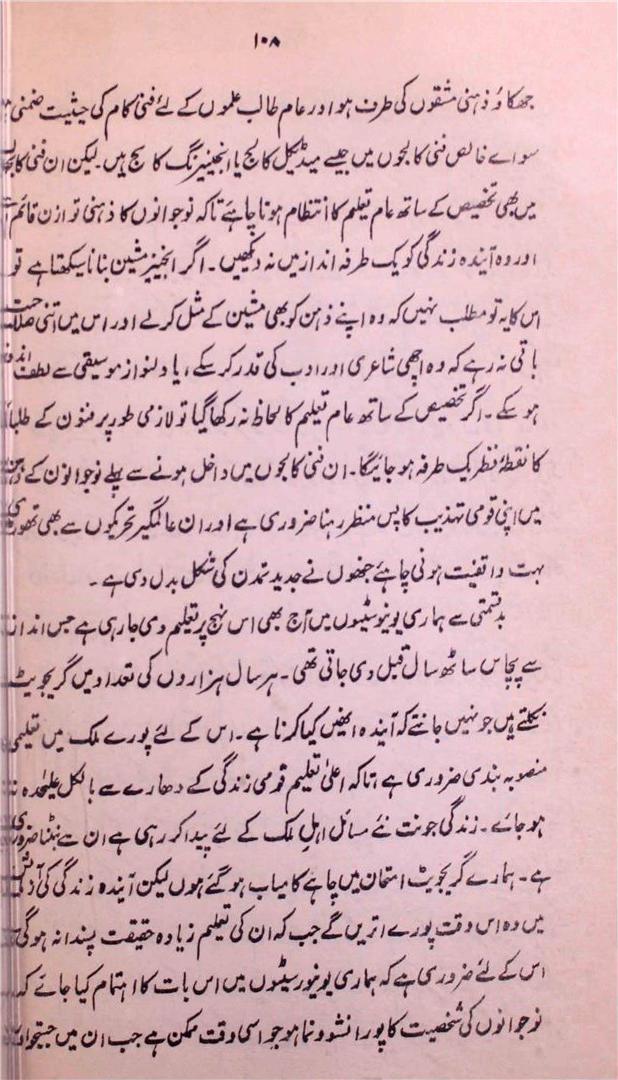 ۱۰۸
جھکاؤ ذہنی مشقوں کی طرف ہو اور عام طالب علموں کے لئے فنی کام کی حیثیت ضمنی ہو
سوائے خالص فنی کالجوں میں جیسے میڈیکل کالج یا انجینیرنگ کالج ہیں۔ لیکن ان فنی کالجوں
میں بھی تخصیص کے ساتھ عام تعلیم کا انتظام ہونا چاہئے تاکہ نوجوانوں کا ذہنی توازن قائم
اور وہ آیندہ زندگی کو یک طرفہ انداز میں نہ دیکھیں۔ اگر انجینیر مشین بنانا سیکھتا ہے تو
اس کا یہ تو مطلب نہیں کہ وہ اپنے ذہن کو بھی مشین کے مثل کر لے اور اس میں اتنی صلاحیت
باقی نہ رہے کہ وہ اچھی شاعری اور ادب کی قدر کر سکے، یا دلنواز موسیقی سے لطف
ہو سکے۔ اگر تخصیص کے ساتھ عام تعلیم کا لحاظ نہ رکھا گیا تو لازمی طور پر فنون کے طلبا
کا نقطۂ نظر یک طرفہ ہو جائیگا۔ ان فنی کالجوں میں داخل ہونے سے پہلے نوجوانوں کے ذہن
میں اپنی قومی تہذیب کا پس منظر رہنا ضروری ہے اور ان عالمگیر تحریکوں سے بھی تھوڑی
بہت واقفیت ہونی چاہئے جنھوں نے جدید تمدن کی شکل بدل دی ہے۔
بدقسمتی سے ہماری یونیوسٹیوں میں آج بھی اس نہج پر تعلیم دی جا رہی ہے جس انداز
سے پچاس ساٹھ سال قبل دی جاتی تھی۔ ہر سال ہزاروں کی تعداد میں گریجویٹ
نکلتے ہیں جو نہیں جانتے کہ آیندہ انھیں کیا کرنا ہے۔ اس کے لئے پورے ملک میں تعلیمی
منصوبہ بندی ضروری ہے تاکہ اعلیٰ تعلیم قومی زندگی کے دھارے سے بالکل علیحدہ نہ
ہو جائے۔ زندگی جو نت نئے مسائل اہلِ ملک کے لئے پیدا کر رہی ہے ان سے نبٹنا ضروری
ہے۔ ہمارے گریجویٹ امتحان میں چاہے کامیاب ہو گئے ہوں لیکن آیندہ زندگی کی
میں وہ اس وقت پورے اتریں گے جب کہ ان کی تعلیم زیادہ حقیقت پسندانہ ہوگی
اس کے لئے ضروری ہے کہ ہماری یونیورسیٹوں میں اس بات کا اہتمام کیا جائے کہ
نوجوانوں کی شخصیت کا پورا نشو ونما ہو جو اسی وقت ممکن ہے جب ان میں